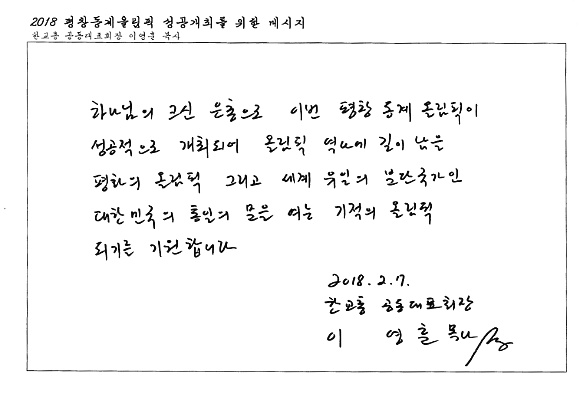 2018 평창동계올림픽 성공개최를 위한 메시지
한교총 공동대표회장 이영훈 목사
하나님의 크신 은총으로 이번 평창 동계 올림픽이
성공적으로 개최되어 올림픽 역사에 길이 남을
평화의 올림픽 그리고 세계 유일의 분단국가인
대한민국의 통일의 문을 여는 기적의 올림픽
되기를 기원합니다
2018. 2. 7.
한교총 공동대표회장
이 영 훈 목사